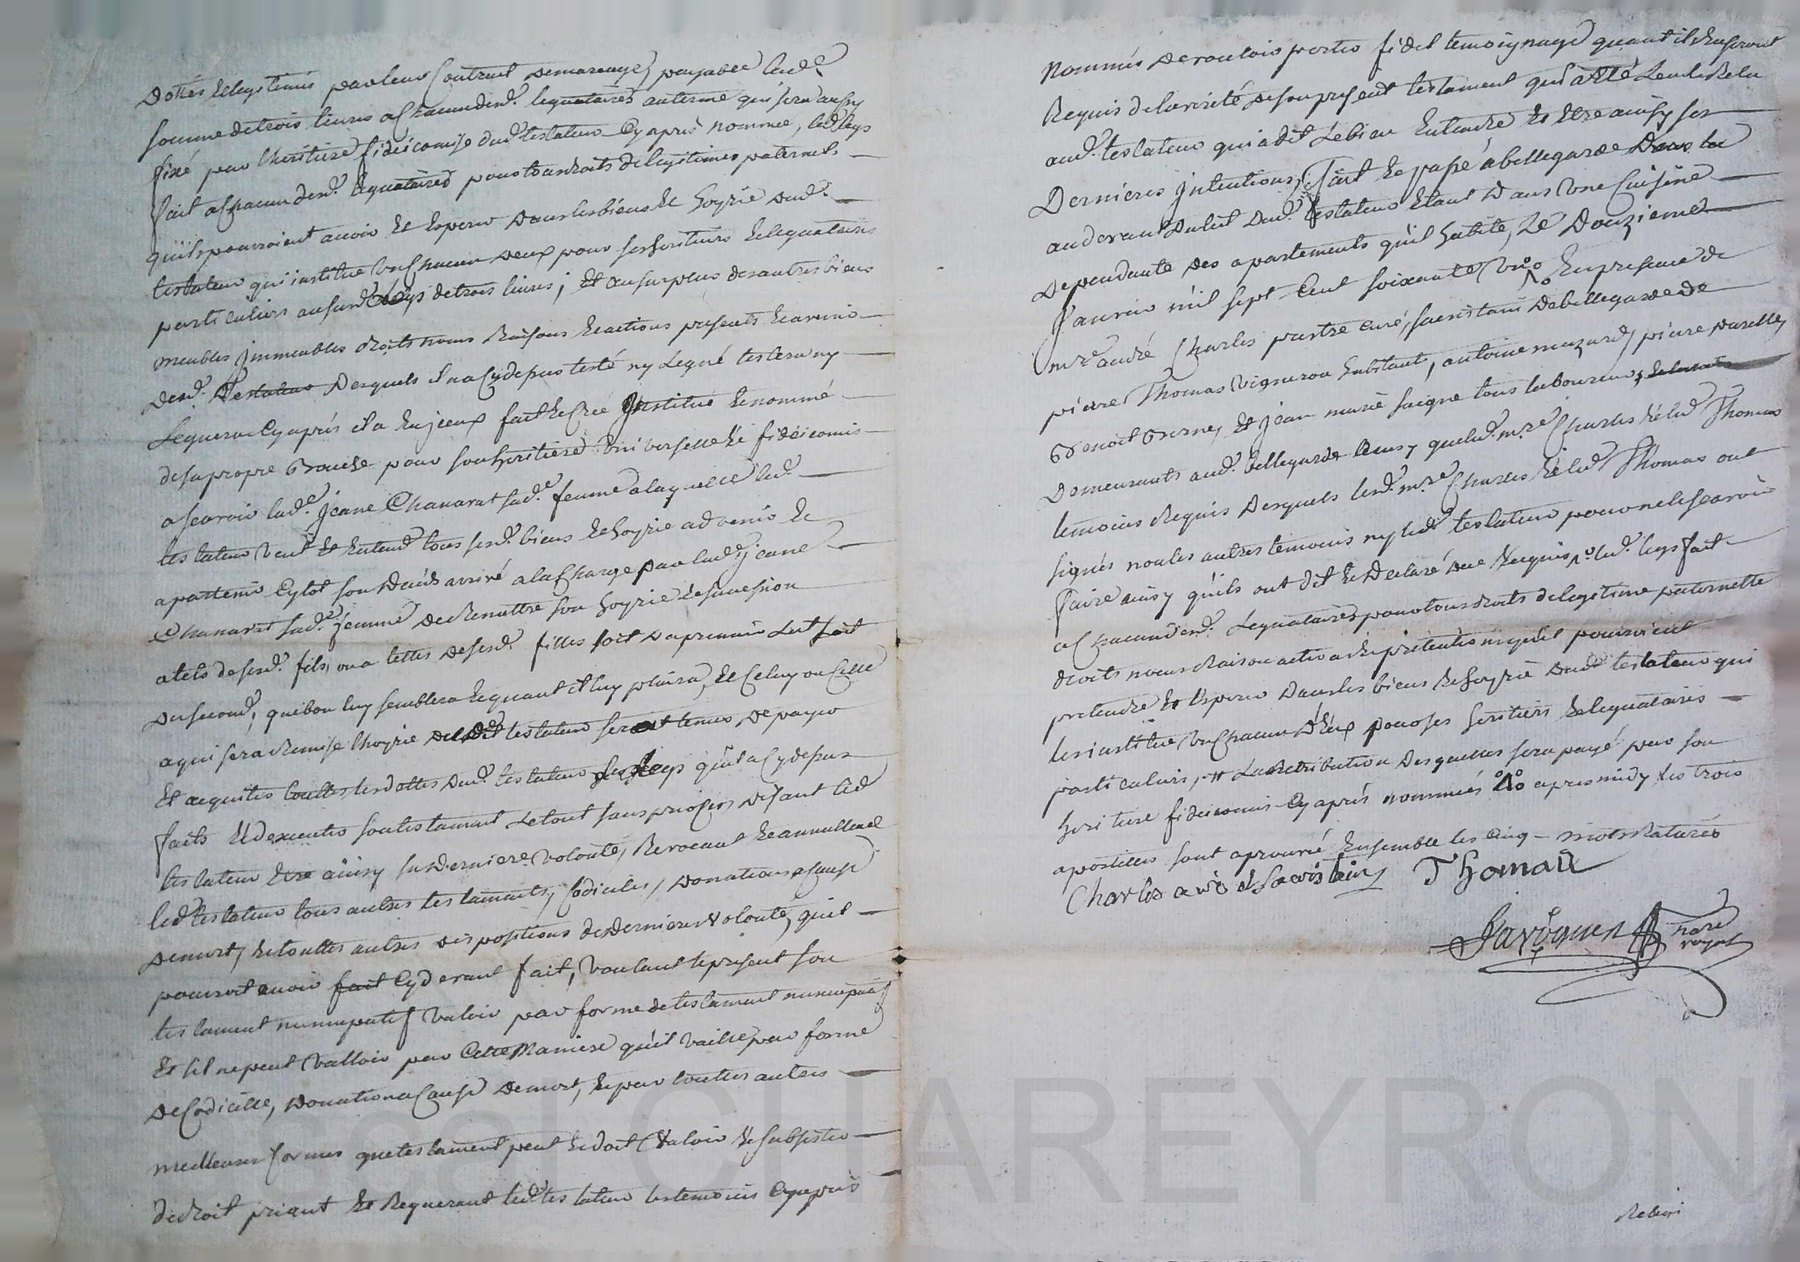 dottés et legitimés par leur Contract de mariage, payable lad.e
somme de trois livres a chacun desd. legataires au terme qui sera aussy
fixé par l'heritiere fideicomise dud. testateur Cy après nommée, led. legs
fait a chacun desd. legataires pour tous droits de legitimes paternels
qu'ils pourroient avoir et esperer dans les biens et hoyrie dud.
testateur qui institue un chacun deux pour ses heritiers et legataires
particuliers ausurd. legs de trois livres ; Et au surplus des autres biens
meubles immeubles droits noms Raisons et actions presents et avenir
dud. Testateur Desquels il n'a Cy depus testé ny Legué testera ny
Leguera Cy après il a en jceux fait et Créé Institué et nommé
de sa propre Bouche pour son heritiere universelle et fideicomis
a scavoir lad.e jeane Chanarat sad.e femme a laquelle led.
testateur veut et entend tous sesd. biens et hoyrie advenir et
apartenir Cytot son Décés arrivé a la Charge par lad. jeane
Chanarat sad.e femme de Remettre son hoyrie et succession
a tels de sesd. fils ou a telles de sesd. filles soit du premier Lit soit
du second, que bon luy semblera et quant il luy plaira, Et Celuy ou Celle
a qui sera Remise lhoyrie dudit testateur sera tenus de payer
Et acquiter touttes les dottes dud. testateur les legs qu'il a Cy depus
faits Et d'executer son testament Le tout sans proces disant led.
testateur Etre ainsy sa derniere volonté, Revocant et annullant
led. testateur tous autres testaments, Codiciles, Donations a Cause
de mort, et touttes autres dispositions de derniere volonté, qu'il
pouroit avoir fait Cy devant fait, voulant le present son
testament nuncupatif valoir par forme de testament nuncupatif
Et s'il ne peut valloir par Cette Maniere qu'il vaille par forme
de Codicille, Donation a Cause de mort, et par touttes autres
meilleures formes que testament peut et doit valoir et subsister
de droit priant Et Requerant led. testateur les temoins Cy après
nommés de vouloir porter fidel temoignage quant ils en seront
Requis de la verité de son present testament qui a été Leu et Relu
aud. testateur qui a dit Le bien Entendre Et Etre ainsy ses
Dernieres Intentions, fait et passé a bellegarde Dans la
au devant du lit dud. testateur etant Dans Une Cuisine
dependante des apartements qu'il habite, Le Douzieme
Janvier mil sept Cent soixante Un En presence de
m.re andré Charles prestre curé, sacristain de bellegarde de
pierre Thomas vigneron habitant, antoine mazard, pierre
Benoit et jean marie saigne tous laboureurs
Demeurants aud. bellegarde ainsy que led. m.re Charles et led. Thomas
temoins Requis Desquels lesd. m.re Charles et led. Thomas ont
signés non les autres temoins ny led. testateur pour ne le scavoir
faire ainsy qu'ils ont dit et Declaré de ce Enquis led. legs fait
a chacun desd. Legataires pour tous droits de legitime paternelle
droits noms Raison action et pretention qu'ils pourroient
pretendre Et Esperer Dans les biens et hoyrie dud. testateur qui
les institue un chacun d'Eux pour ses heritiers et legataires
particuliers, La Retribution Desquelles sera payé par son
heritiere fideicomis Cy après nommée apres midy Les trois
apostilles sont aprouvé Ensemble les Cinq mots Raturés
Charles curé et Sacristain Thomas
nore
royal
CHAREYRON